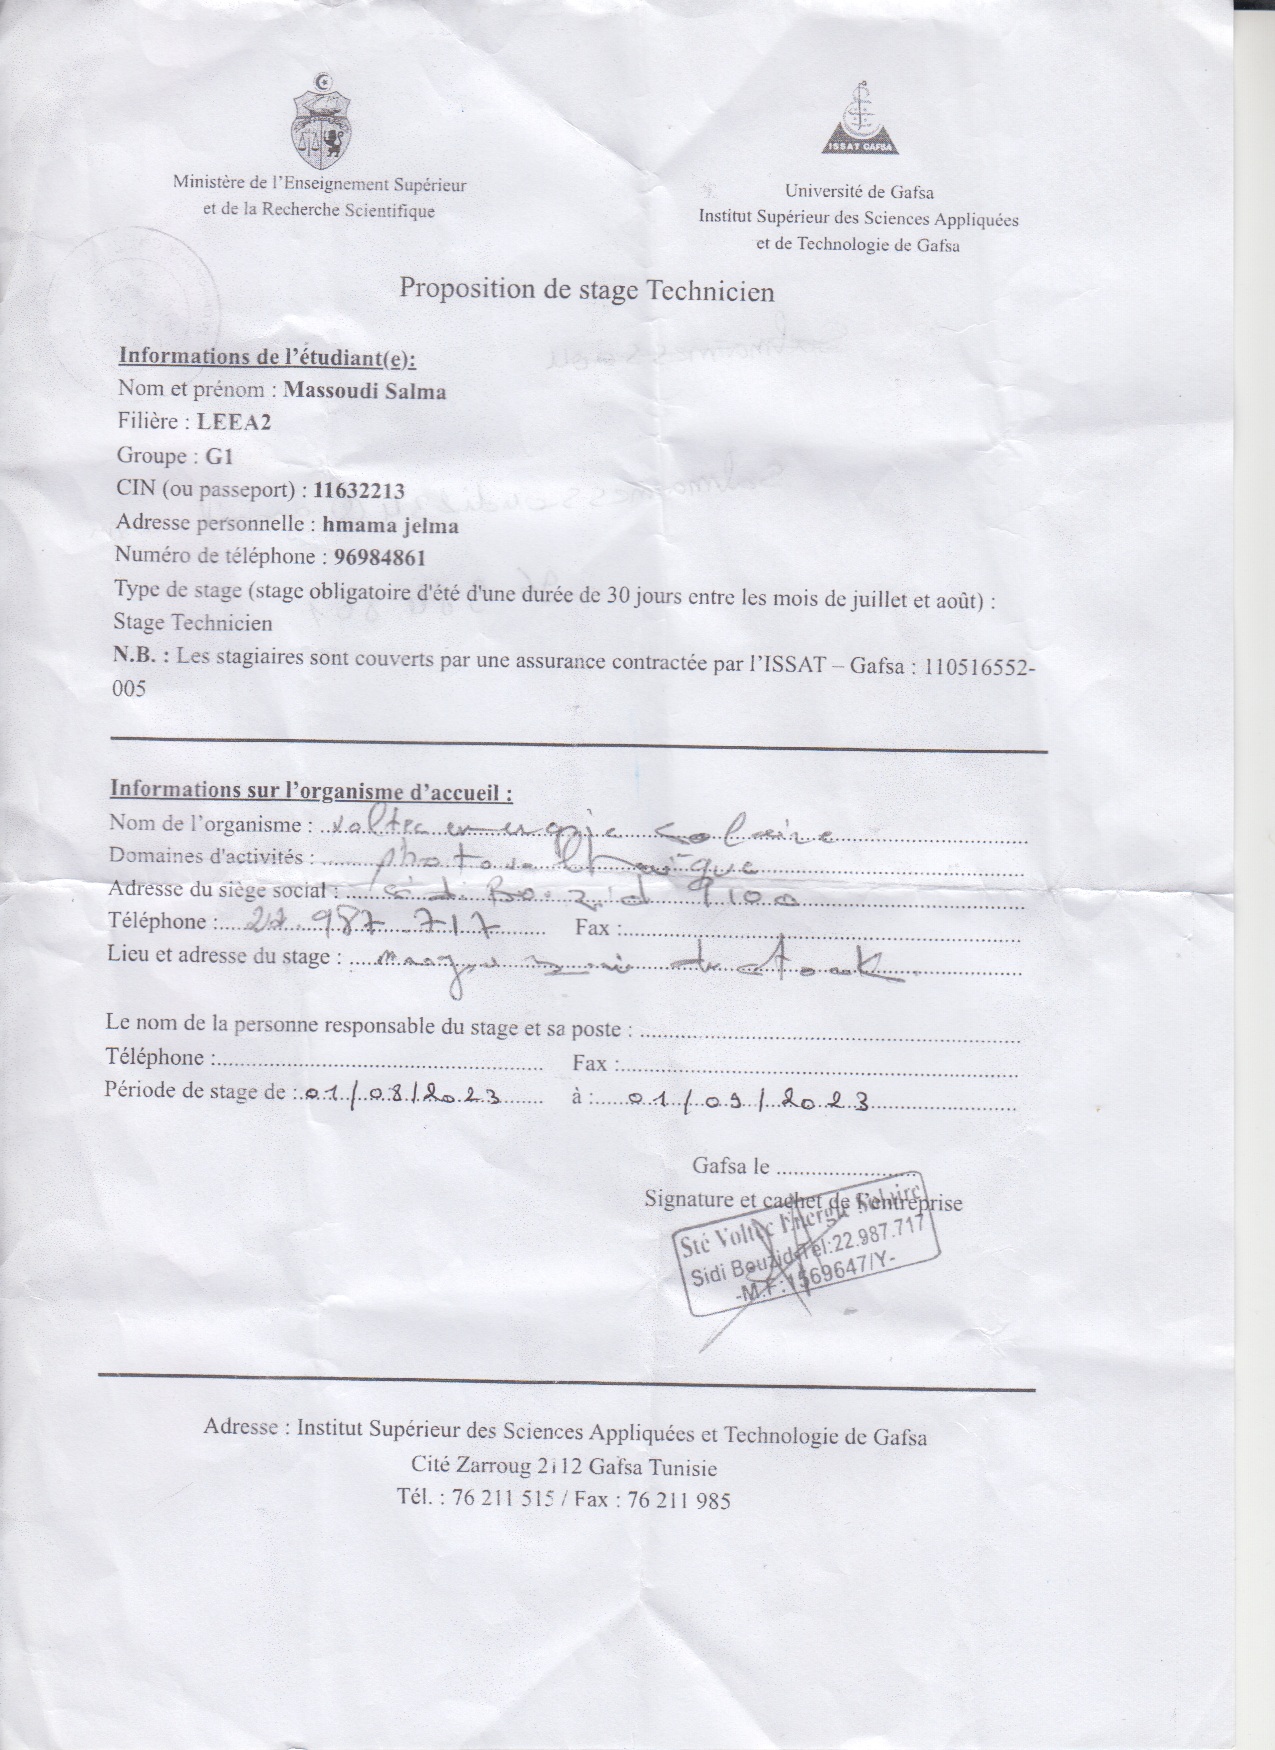 ISSAT GAFSA
Ministère de l'Enseignement Supérieur
et de la Recherche Scientifique
Université de Gafsa
Institut Supérieur des Sciences Appliquées
et de Technologie de Gafsa
Proposition de stage Technicien
Informations de l'étudiant(e):
Nom et prénom : Massoudi Salma
Filière : LEEA2
Groupe : G1
CIN (ou passeport) : 11632213
Adresse personnelle : hmama jelma
Numéro de téléphone : 96984861
Type de stage (stage obligatoire d'été d'une durée de 30 jours entre les mois de juillet et août) :
Stage Technicien
N.B. : Les stagiaires sont couverts par une assurance contractée par l'ISSAT – Gafsa : 110516552-
005
Informations sur l'organisme d'accueil :
Nom de l'organisme : voltec energie solaire
Domaines d'activités : photovoltaïque
Adresse du siège social : sidi Bouzid 9100
Téléphone : 22.987.717 Fax :
Lieu et adresse du stage : de stock
Le nom de la personne responsable du stage et sa poste :
Téléphone : Fax :
Période de stage de : 01/08/2023 à : 01/09/2023
Gafsa le
Signature et cachet de l'entreprise
Sté Voltec Energie Solaire
Sidi Bouzid-Tel:22.987.717
-M.F:1569647/Y-
Adresse : Institut Supérieur des Sciences Appliquées et Technologie de Gafsa
Cité Zarroug 2112 Gafsa Tunisie
Tél. : 76 211 515 / Fax : 76 211 985